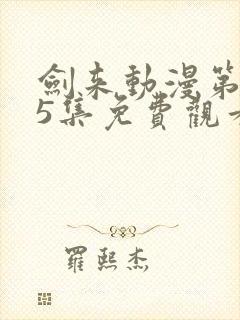 劍来動漫第
5集免費觀
羅熙杰